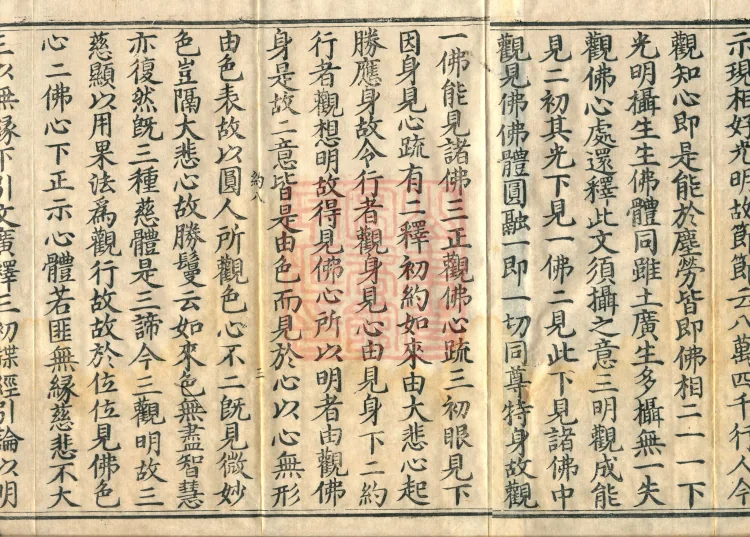 示現相好光明故節節云八萬四千行人今
觀知心即是能於塵勞皆即佛相二一一下
光明攝生生佛體同雖土廣生多攝無一失
觀佛心處還釋此文須攝之意三明觀成能
見二初其光下見一佛二見此下見諸佛中
觀見佛佛體圓融一即一切同尊特身故觀
一佛能見諸佛三正觀佛心疏三初眼見下
因身見心疏有二釋初約如來由大悲心起
勝應身故令行者觀身見心由見身下二約
行者觀想明故得見佛心所以明者由觀佛
身是故二意皆是由色而見於心以心無形
約八 三
由色表故以圓人所觀色心不二既見微妙
色豈隔大悲心故勝鬘云如來色無盡智慧
亦復然既三種慈體是三諦今三觀明故三
慈顯以用果法爲觀行故故於位位見佛色
心二佛心下正示心體若匪無緣慈悲不大
三以無緣下引文廣釋三初牒經引論以明